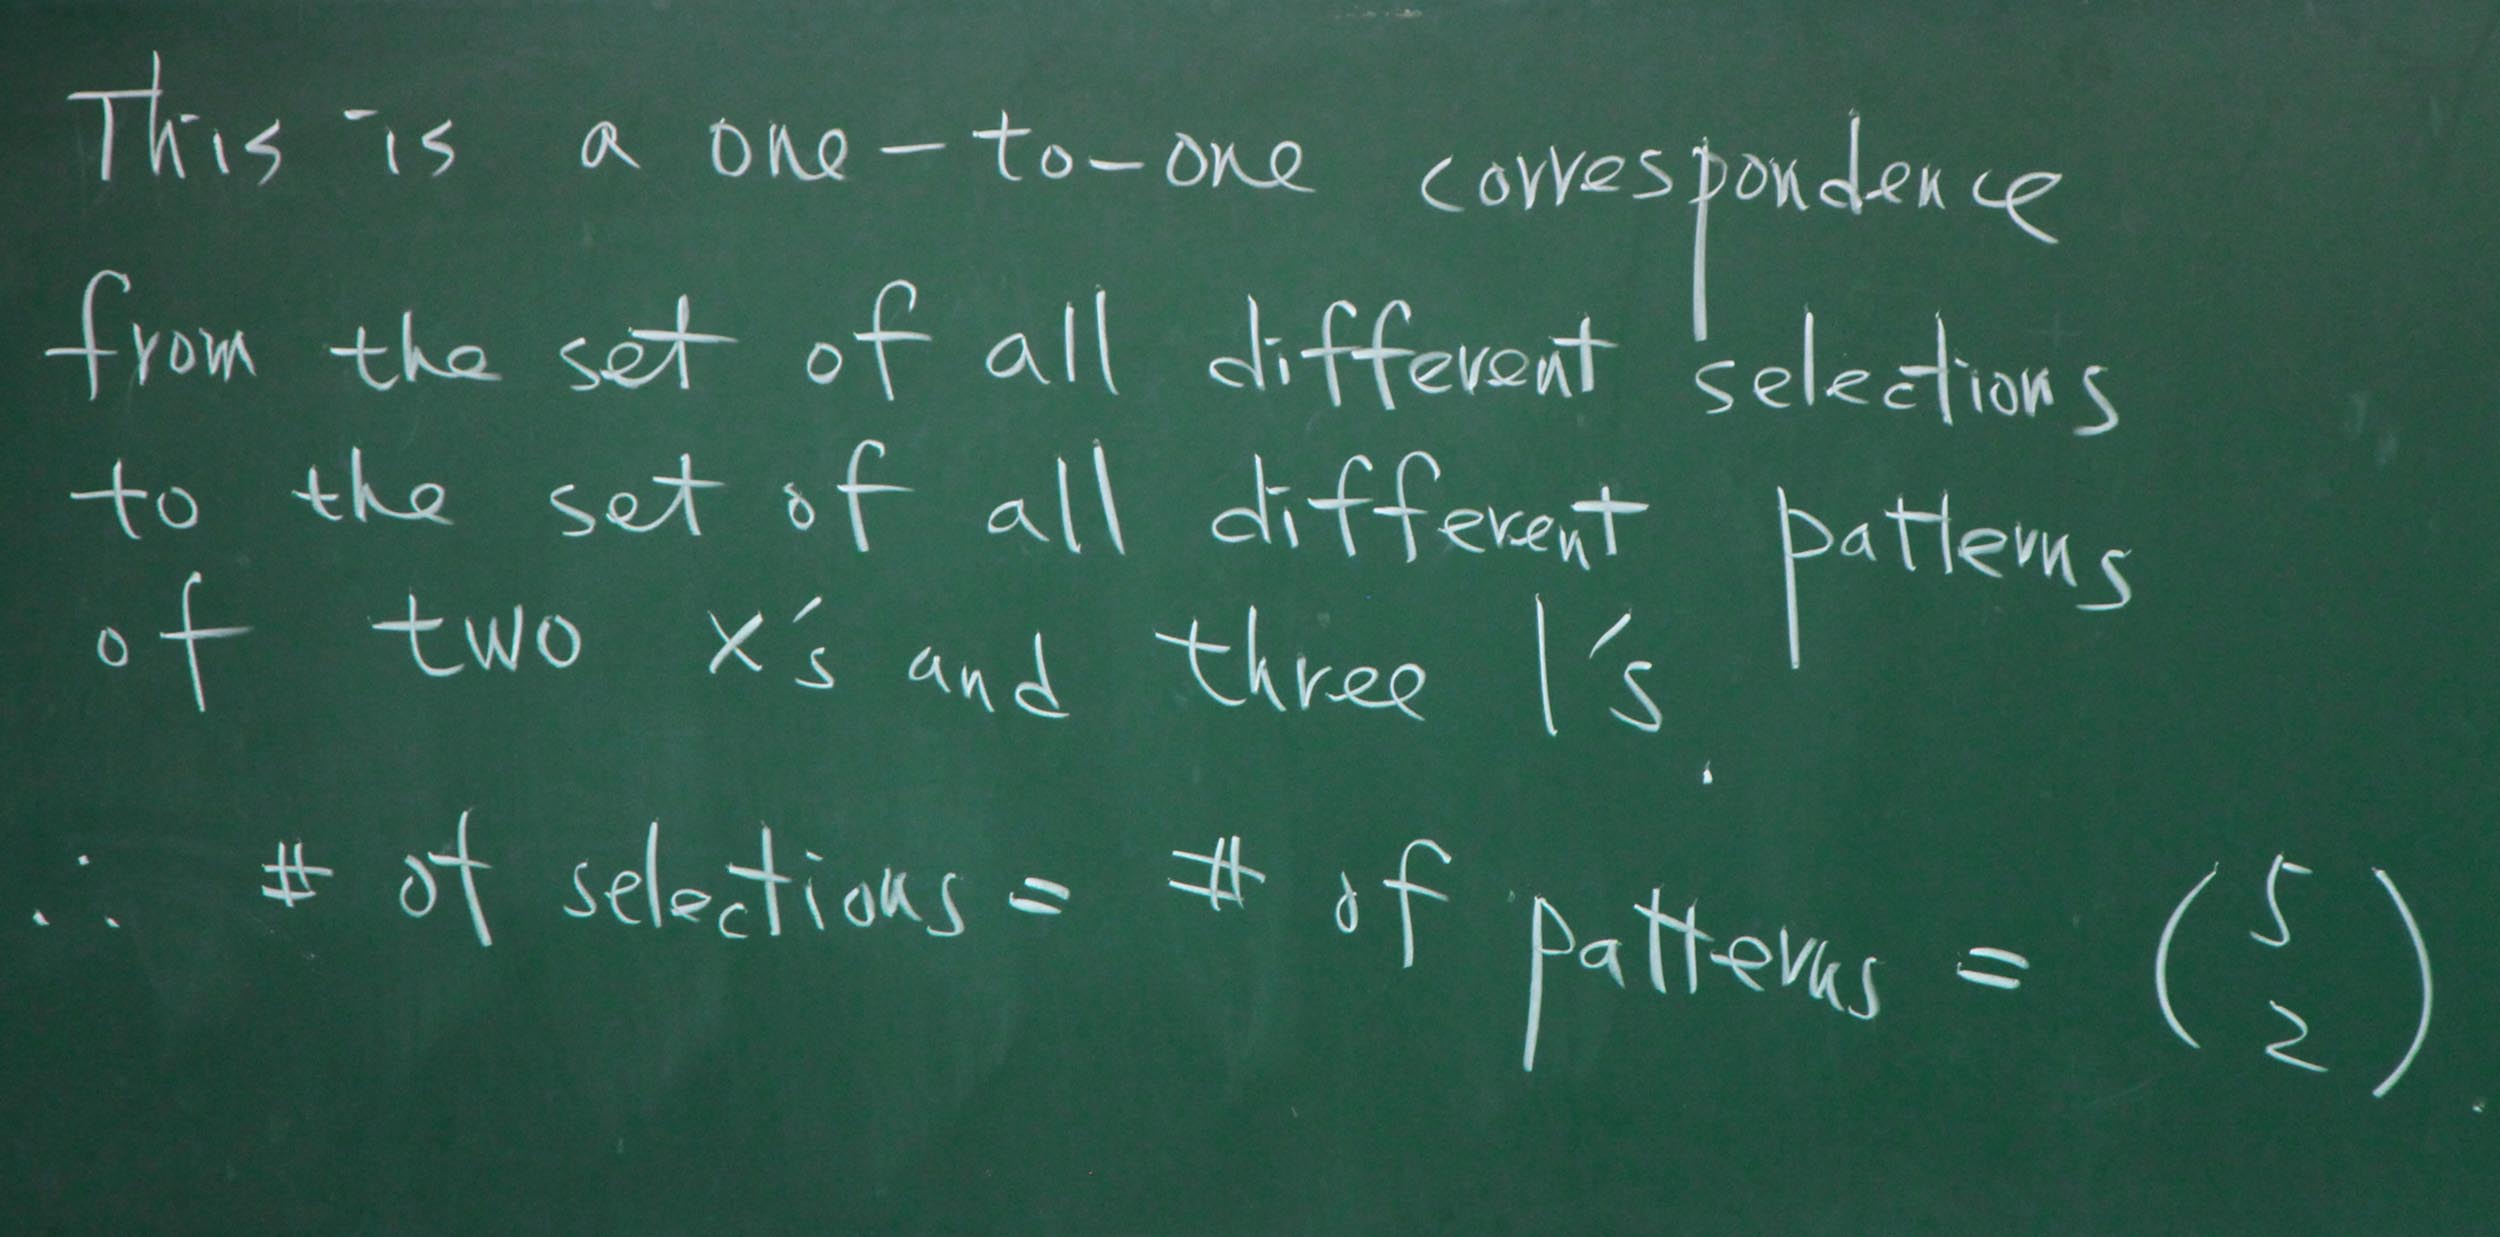 This is a one-to-one correspondence
from the set of all different selections
to the set of all different patterns
of two x's and three |'s.
∴ # of selections = # of patterns = (5 2).